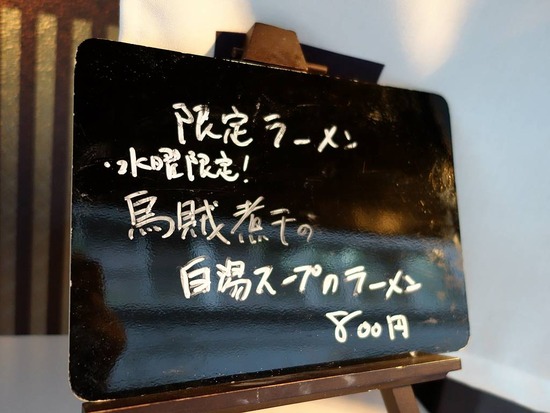 限定ラーメン
・水曜限定!
烏賊煮干の
白湯スープのラーメン
800円